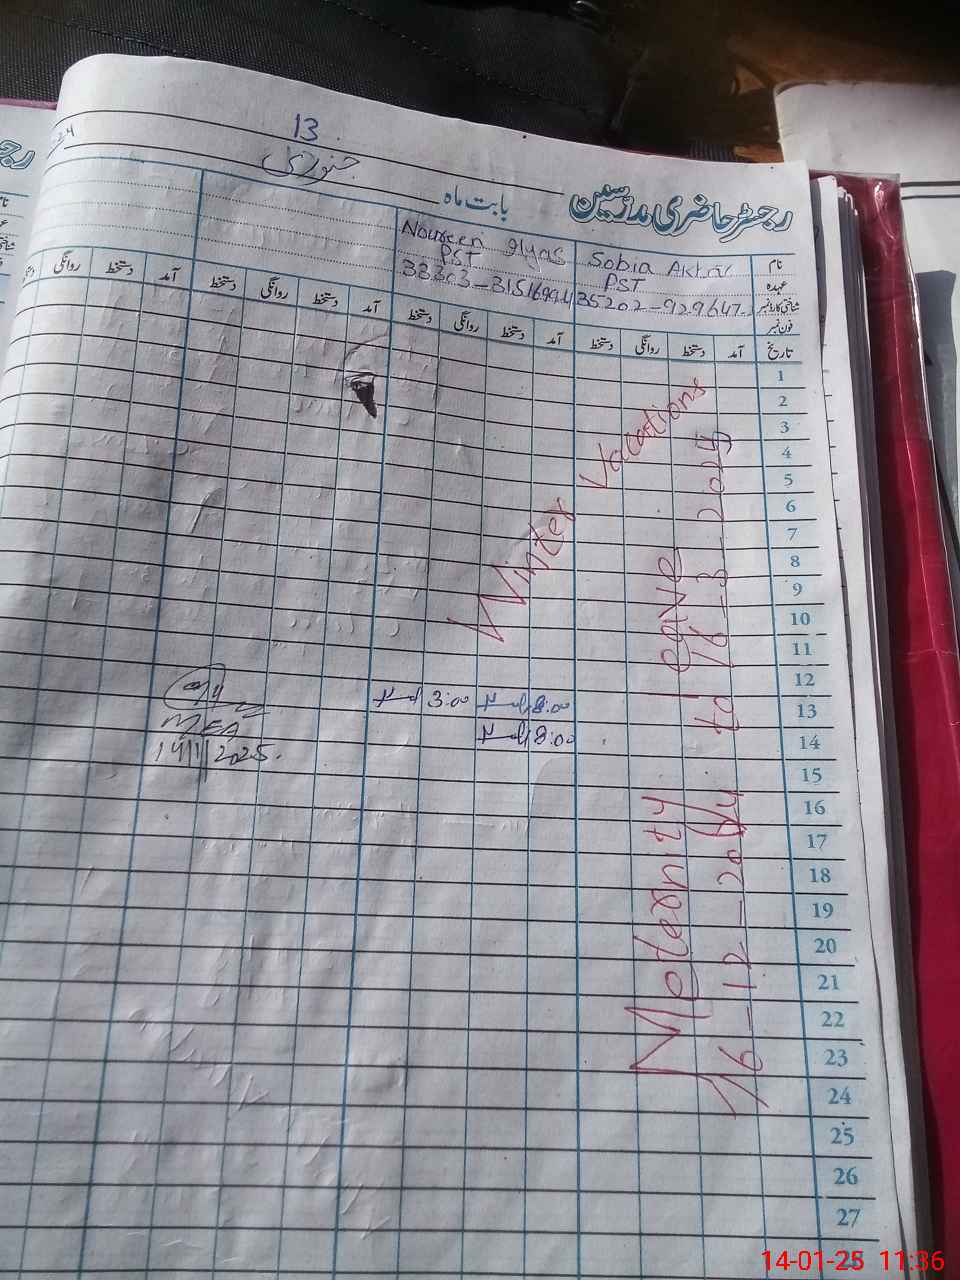 13
جنوری
رجسٹر حاضری مدرسین
بابت ماہ
نام
Sobia Akhtar
Noureen Ilyas
عہدہ
PST
PST
شناختی کارڈ نمبر
35202-929647
33303-3151699
فون نمبر
تاریخ
آمد دستخط روانگی دستخط آمد دستخط روانگی دستخط آمد دستخط روانگی دستخط آمد دستخط روانگی
1
2
3
4
5
6
7
8
9
10
11
12
13
14
15
16
17
18
19
20
21
22
23
24
25
26
27
Winter Vacations
Meternity Leave
16-12-2024 to 16-3-2024
8:00
3:00
8:00
MEA
14/1/2025.
14-01-25 11:36